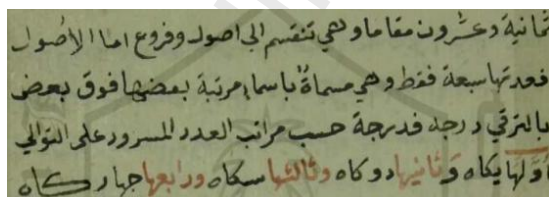 ثمانية وعشرون مقاما وهي تنقسم الى اصول وفروع اما الأصول
فعدتها سبعة فقط وهي مسماة باسماء مرتبة بعضها فوق بعض
بالترقي درجه فدرجة حسب مراتب العدد المسرود على التوالي
أولها يكاه وثانيها دوكاه وثالثها سكاه ورابعها جهاركاه